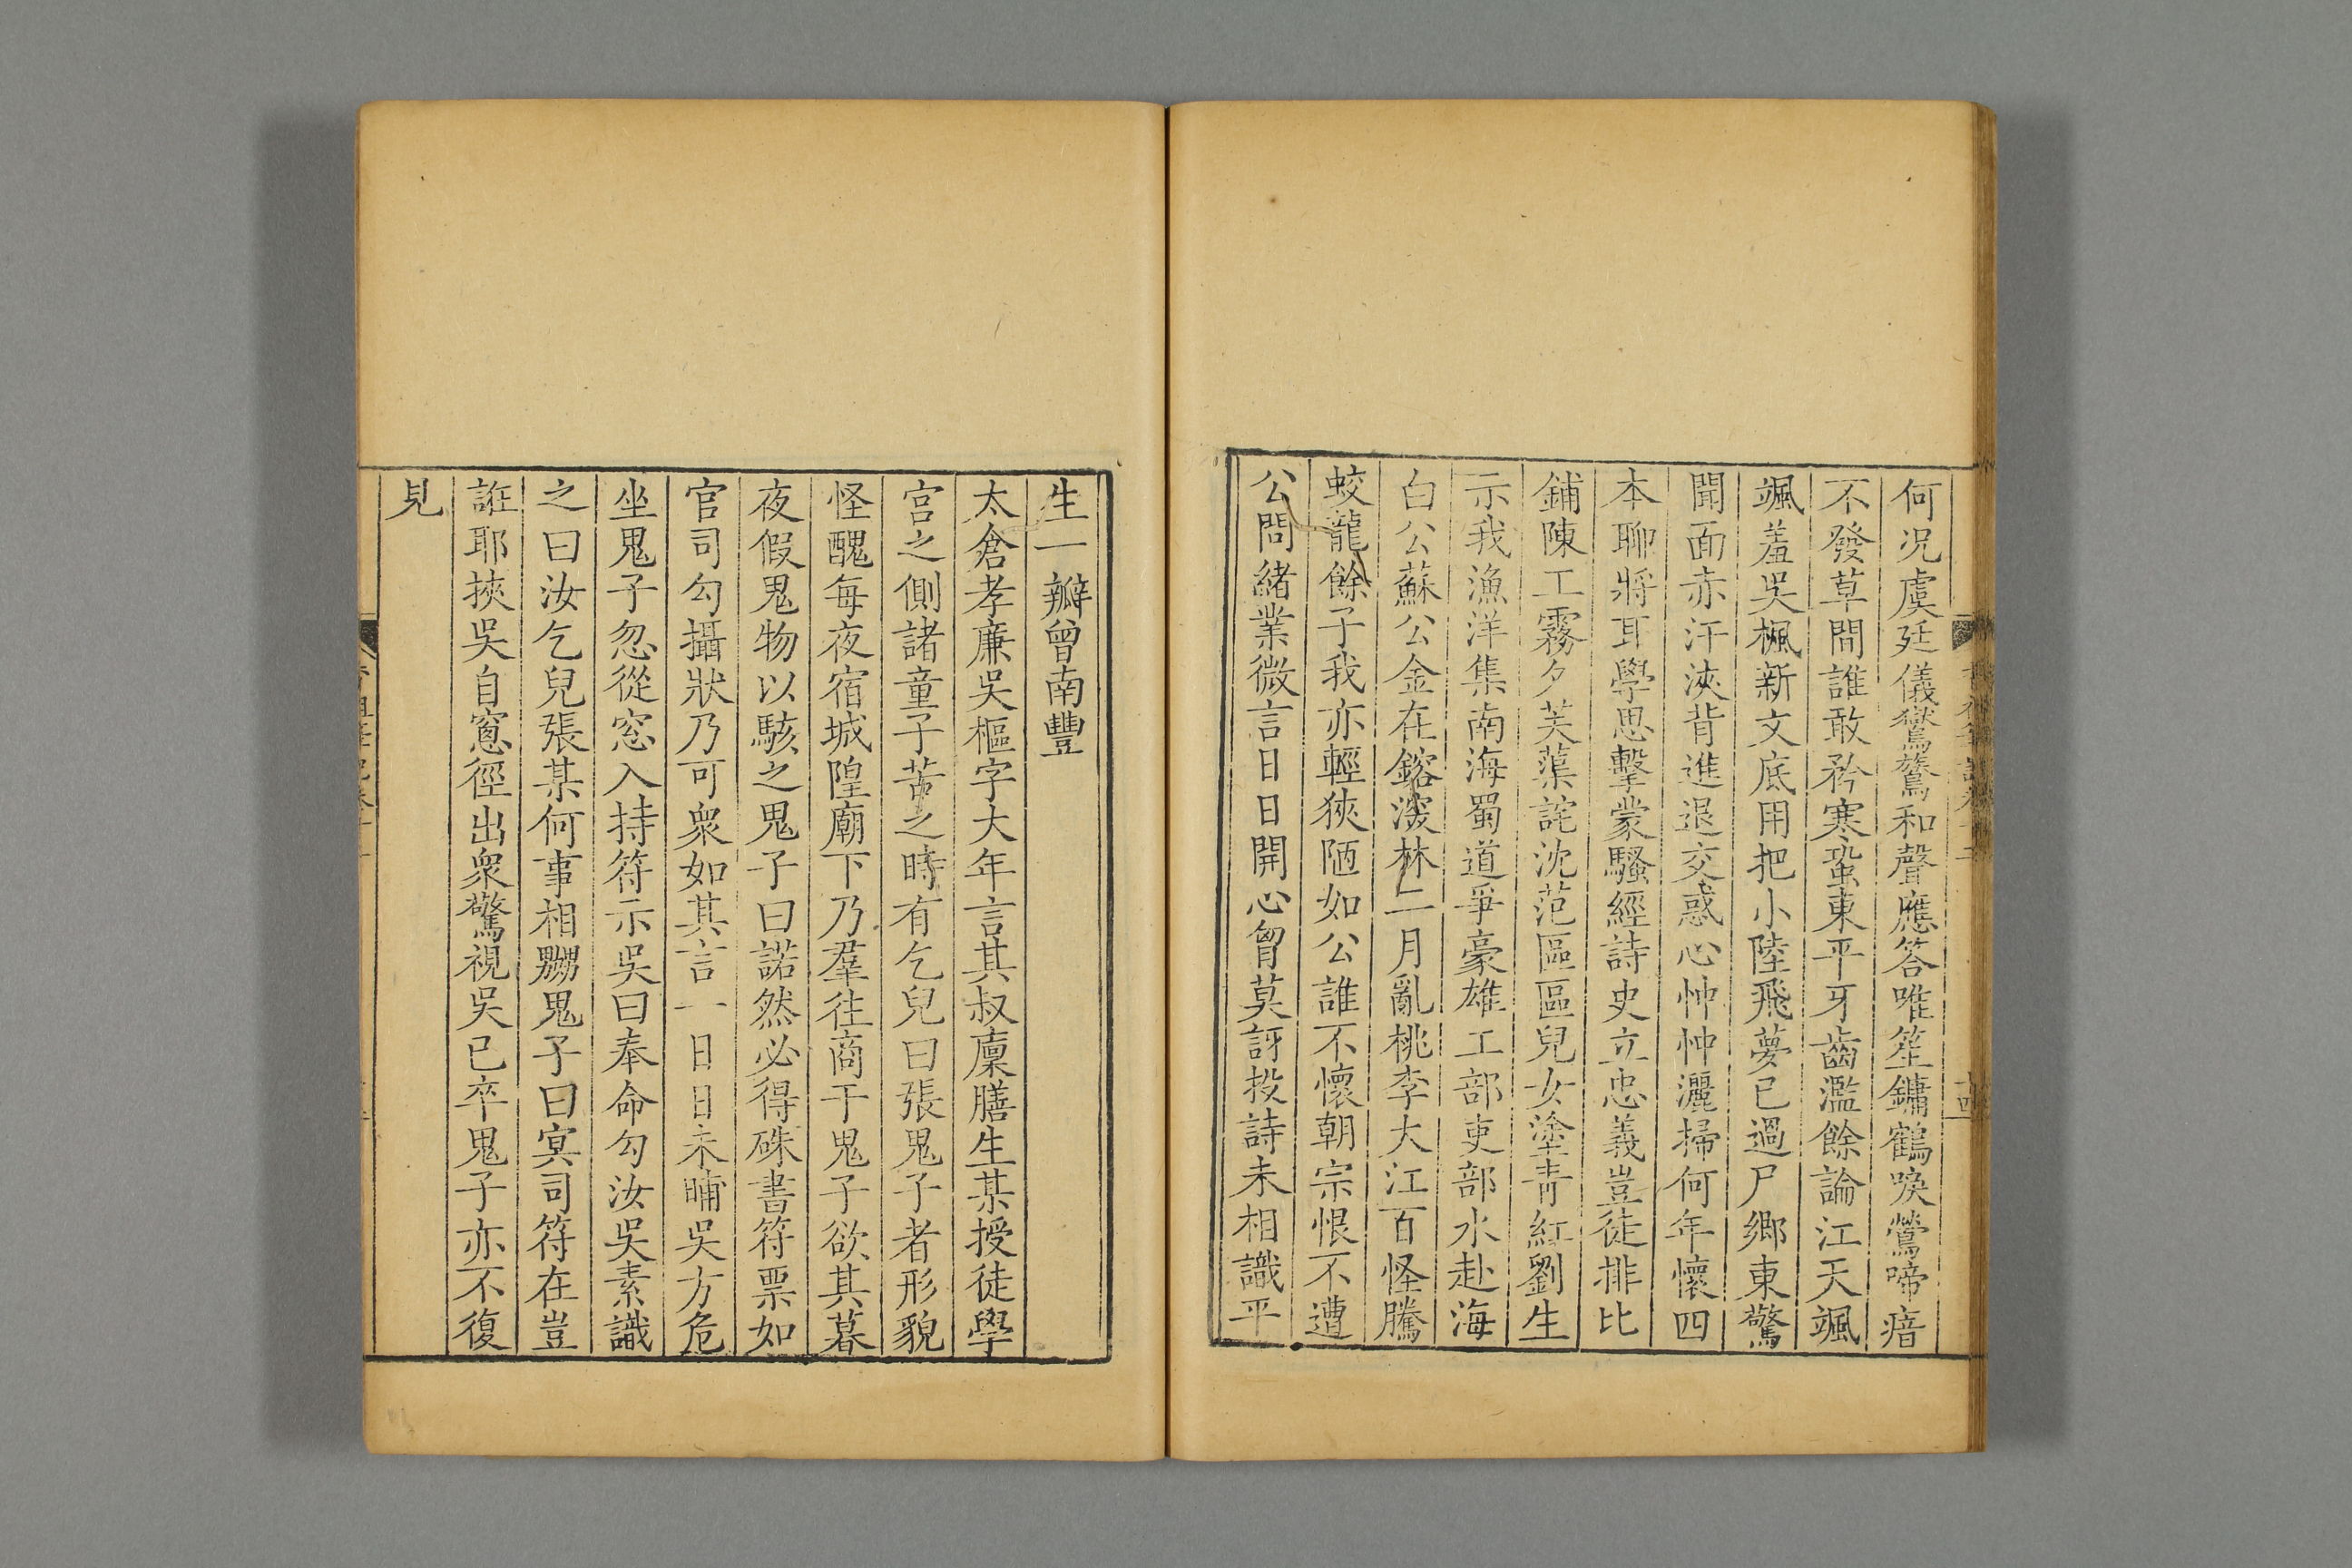 何況虞廷儀鸑鷟和聲應答唯笙鏞鶴唳鶯啼瘖
不發草間誰敢矜寒蛩東平牙齒濫餘論江天颯
颯羞吳楓新文底用把小陸飛夢已過尸鄉東驚
聞面赤汗浹背進退交惑心忡忡灑掃何年懷四
本聊將耳學思擊蒙騷經詩史立忠義豈徒排比
鋪陳工霧夕芙蕖詫沈范區區兒女塗青紅劉生
示我漁洋集南海蜀道爭豪雄工部吏部水赴海
白公蘇公金在鎔滾林二月亂桃李大江百怪騰
蛟龍餘子我亦輕狹陋如公誰不懷朝宗恨不遭
公問緒業微言日日開心胷莫訝投詩未相識平
生一瓣曾南豐
太倉孝廉吳樞字大年言其叔廩膳生某授徒學
宮之側諸童子苦之時有乞兒曰張鬼子者形貌
怪醜每夜宿城隍廟下乃羣往商于鬼子欲其暮
夜假鬼物以駭之鬼子曰諾然必得硃書符票如
官司勾攝狀乃可衆如其言一日日未晡吳方危
坐鬼子忽從窓入持符示吳曰奉命勾汝吳素識
之曰汝乞兒張某何事相嬲鬼子曰冥司符在豈
誑耶挾吳自窻徑出衆驚視吳已卒鬼子亦不復
見